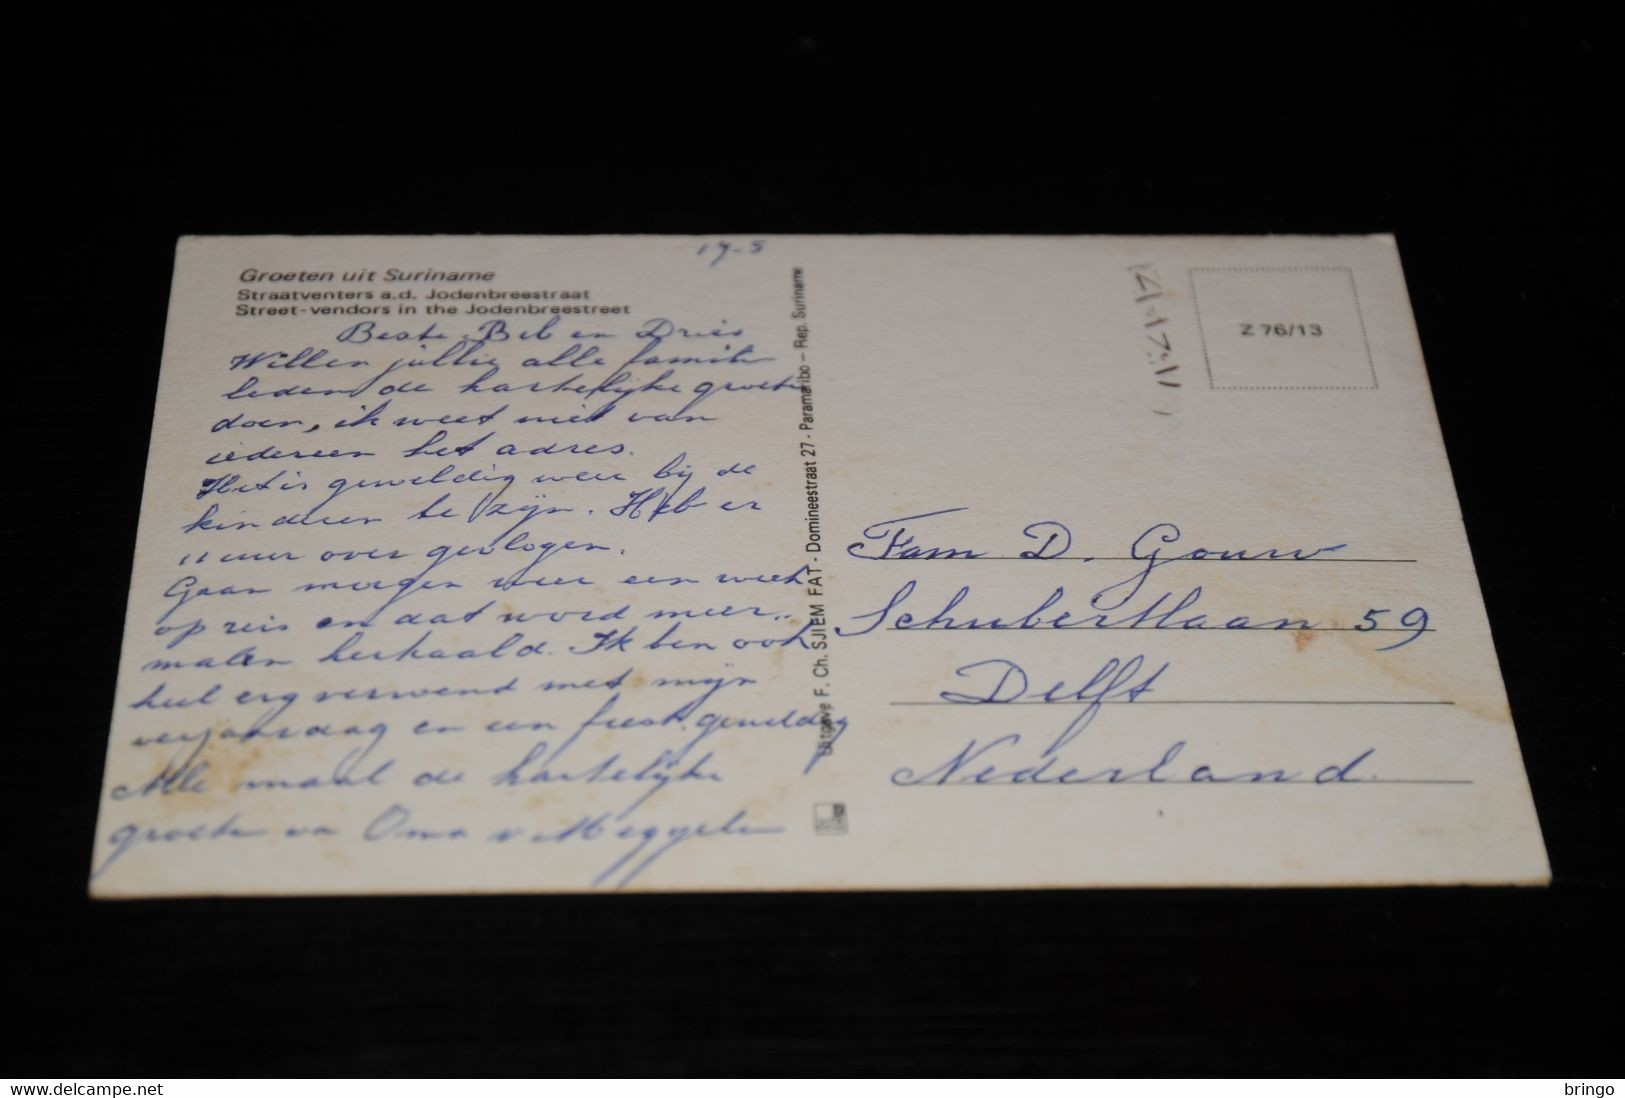 17-5
Groeten uit Suriname
Straatventers a.d. Jodenbreestraat
Street-vendors in the Jodenbreestreet
Beste Beb en Dries
Willen jullie alle famili
leden de hartelijke groeten
doen, ik weet niet van
iedereen het adres.
Het is geweldig weer bij de
kinderen te zijn. Heb er
11 uur over gevlogen.
Gaan morgen weer een week
op reis en dat word meer..
malen herhaald. Ik ben ook
heel erg verwend met mijn
verjaardag en een feest geweldig
Alle maal de hartelijke
groeten va Oma v Meggelen
Uitgave F. Ch. SJIEM FAT - Domineestraat 27 - Paramaribo – Rep. Suriname
Z 76/13
Fam D. Gouw
Schubertlaan 59
Delft
Nederland.
delcampe.net
bringo